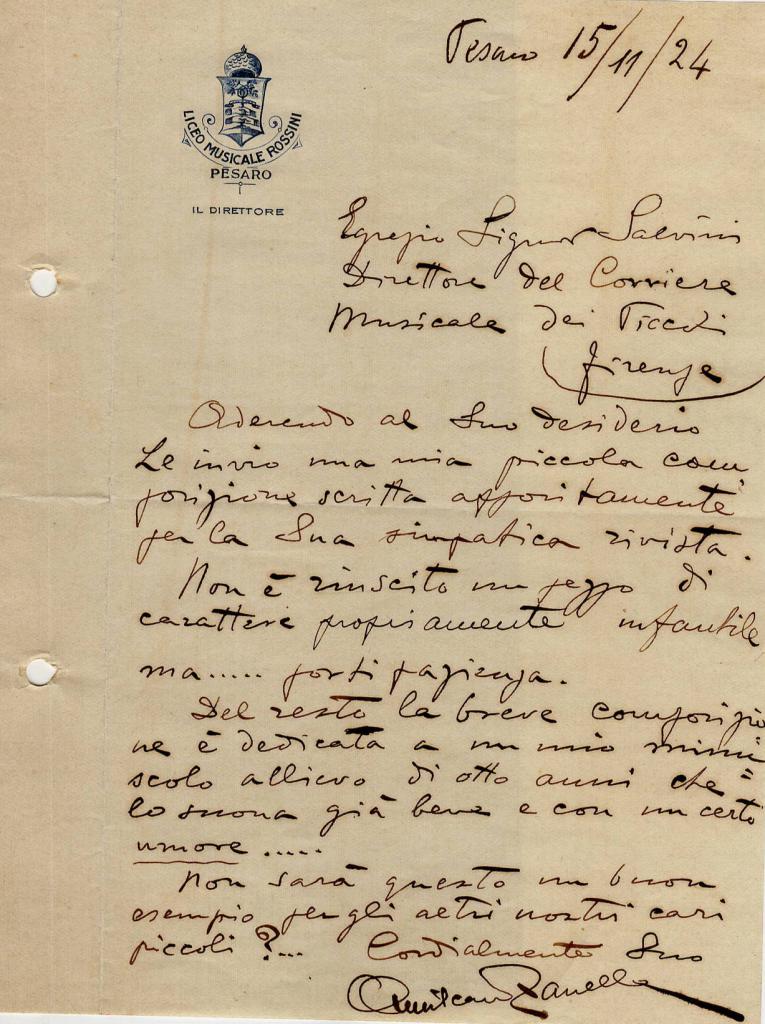 Pesaro 15/11/24
LICEO MUSICALE ROSSINI
PESARO
IL DIRETTORE
Egregio Signor Salvini
Direttore del Corriere
Musicale dei Piccoli
Firenze
Aderendo al Suo desiderio
Le invio una mia piccola com-
posizione scritta appositamente
per la Sua simpatica rivista.
Non è riuscito un pezzo di
carattere propriamente infantile,
ma..... porti pazienza.
Del resto la breve composizio
ne è dedicata a un mio minu=
scolo allievo di otto anni che
lo suona già bene e con un certo
umore.....
Non sarà questo un buon
esempio per gli altri nostri cari
piccoli?... Cordialmente Suo
Amilcare Zanella